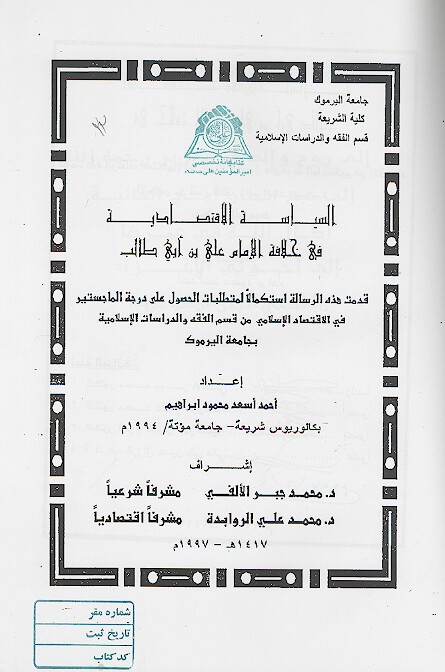 جامعة اليرموك
كلية الشريعة
قسم الفقه والدراسات الإسلامية
كتابخانه تخصصي
امير المؤمنين علي
السياسة الاقتصادية
في خلافة الإمام علي بن أبي طالب
قدمت هذه الرسالة استكمالاً لمتطلبات الحصول على درجة الماجستير
في الاقتصاد الإسلامي من قسم الفقه والدراسات الإسلامية
بجامعة اليرموك
إعداد
أحمد أسعد محمود ابراهيم
بكالوريوس شريعة - جامعة مؤتة / ١٩٩٤م
إشراف
د. محمد جبر الألفي مشرفاً شرعياً
د. محمد علي الروابدة مشرفاً اقتصادياً
١٤١٧هـ - ١٩٩٧م
شماره مفر
تاريخ ثبت
كد كتاب